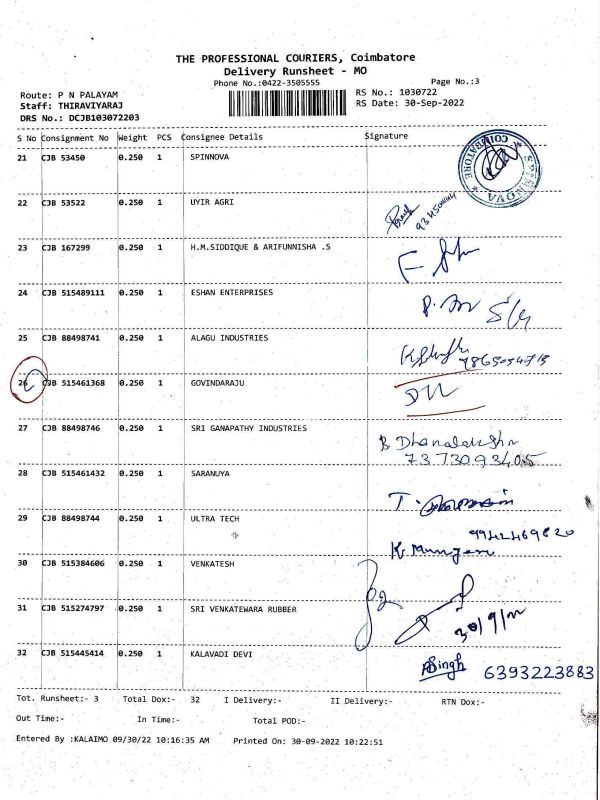 THE PROFESSIONAL COURIERS, Coimbatore
Delivery Runsheet - MO
Phone No.:0422-3505555
Page No.:3
Route: P N PALAYAM
RS No.: 1030722
Staff: THIRAVIYARAJ
RS Date: 30-Sep-2022
DRS No.: DCJB103072203
S No Consignment No Weight PCS Consignee Details Signature
21 CJB 53450 0.250 1 SPINNOVA
SPINNOVA * COIMBATORE *
22 CJB 53522 0.250 1 UYIR AGRI
23 CJB 167299 0.250 1 H.M.SIDDIQUE & ARIFUNNISHA .S
24 CJB 515489111 0.250 1 ESHAN ENTERPRISES
25 CJB 88498741 0.250 1 ALAGU INDUSTRIES
26 CJB 515461368 0.250 1 GOVINDARAJU
27 CJB 88498746 0.250 1 SRI GANAPATHY INDUSTRIES
B Dhanalakshmi
7373093405
28 CJB 515461432 0.250 1 SARANUYA
29 CJB 88498744 0.250 1 ULTRA TECH
9942469820
30 CJB 515384606 0.250 1 VENKATESH
31 CJB 515274797 0.250 1 SRI VENKATEWARA RUBBER
30/9/22
32 CJB 515445414 0.250 1 KALAVADI DEVI
Singh 6393223883
Tot. Runsheet:- 3 Total Dox:- 32 I Delivery:- II Delivery:- RTN Dox:-
Out Time:- In Time:- Total POD:-
Entered By :KALAIMO 09/30/22 10:16:35 AM Printed On: 30-09-2022 10:22:51